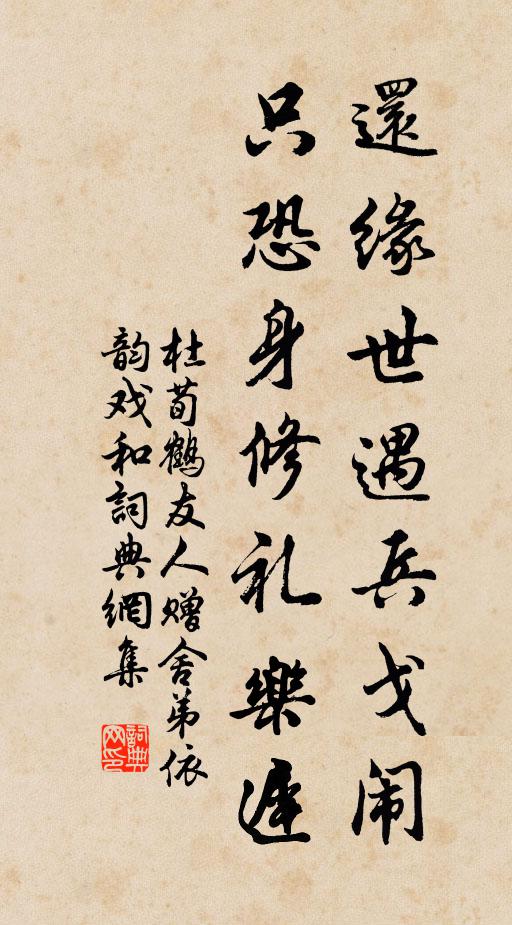 還緣世遇兵戈闹
只恐身修礼樂遲
杜荀鶴友人赠舍弟依
韵戏和詞典網集
詞典网印